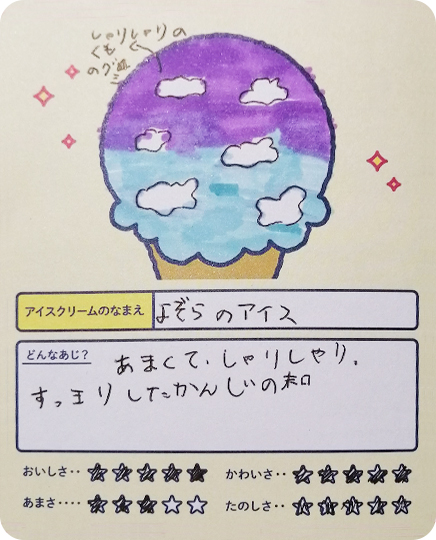 しゃりしゃりの
くも
アイスクリームのなまえ よぞらのアイス
どんなあじ? あまくて、しゃりしゃり。
すっきりしたかんじの味
おいしさ‥ ★★★★★ かわいさ‥ ★★★★★
あまさ‥‥ ★★★☆☆ たのしさ‥ ★★★★★